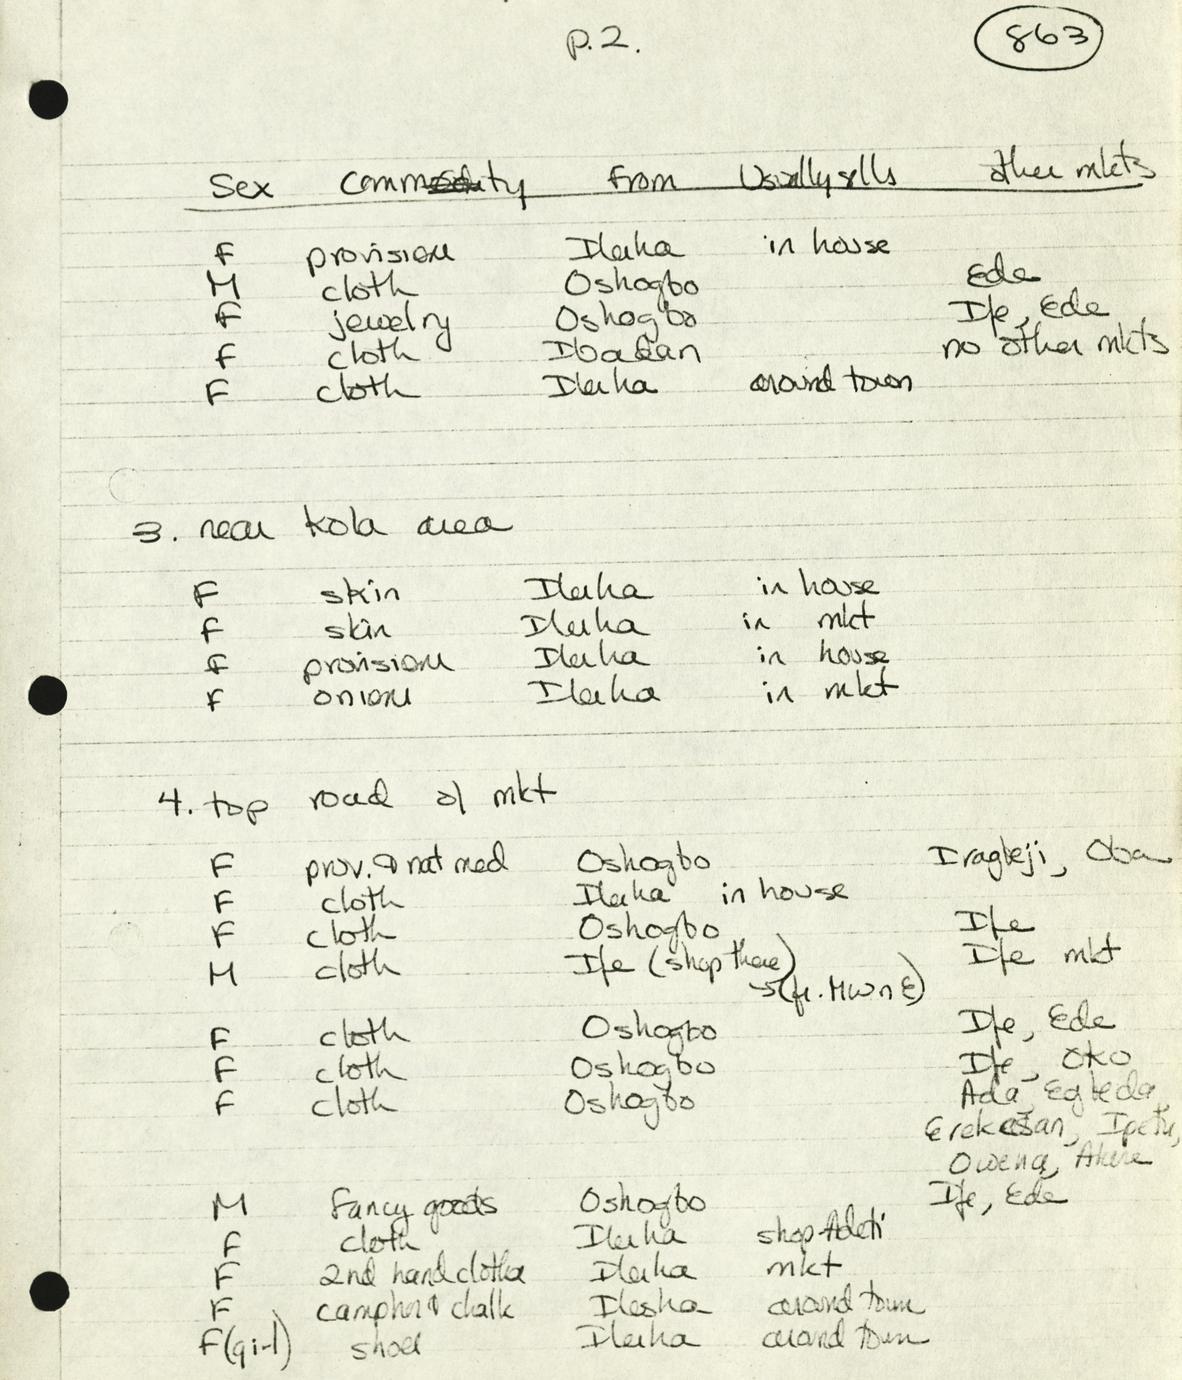 p.2.
863
Sex Commodity From Usually sells other mkts
F provisions Ilesha in house
M cloth Oshogbo Ede
F jewelry Oshogbo Ife, Ede
F cloth Ibadan no other mkts
F cloth Ilesha around town
3. near kola area
F skin Ilesha in house
F skin Ilesha in mkt
F provisions Ilesha in house
F onions Ilesha in mkt
4. top road of mkt
F prov. & nat med Oshogbo Iragbeji, Oba
F cloth Ilesha in house
F cloth Oshogbo Ife
M cloth Ife (shop there) Ife mkt
→(fr. MW n E)
F cloth Oshogbo Ife, Ede
F cloth Oshogbo Ife, Oko
F cloth Oshogbo Ada, Egbeda,
Erekesan, Ipetu,
Owena, Akure
M Fancy goods Oshogbo Ife, Ede
F cloth Ilesha shop-Adeti
F 2nd hand clothes Ilesha mkt
F camphor & chalk Ilesha around town
F(girl) shoes Ilesha around town